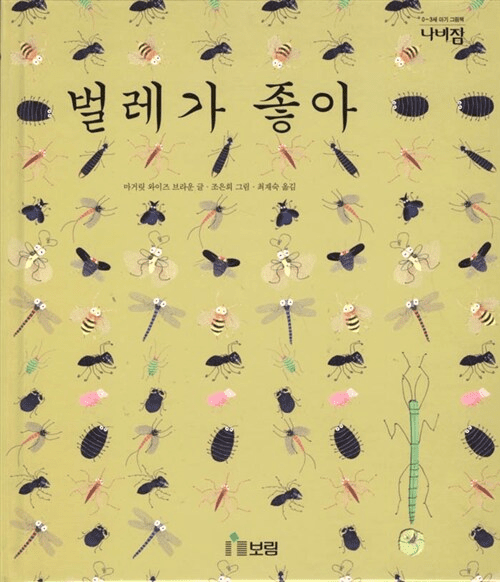 0~3세 아기 그림책
나비잠
벌레가 좋아
마거릿 와이즈 브라운 글 · 조은희 그림 · 최재숙 옮김
보림